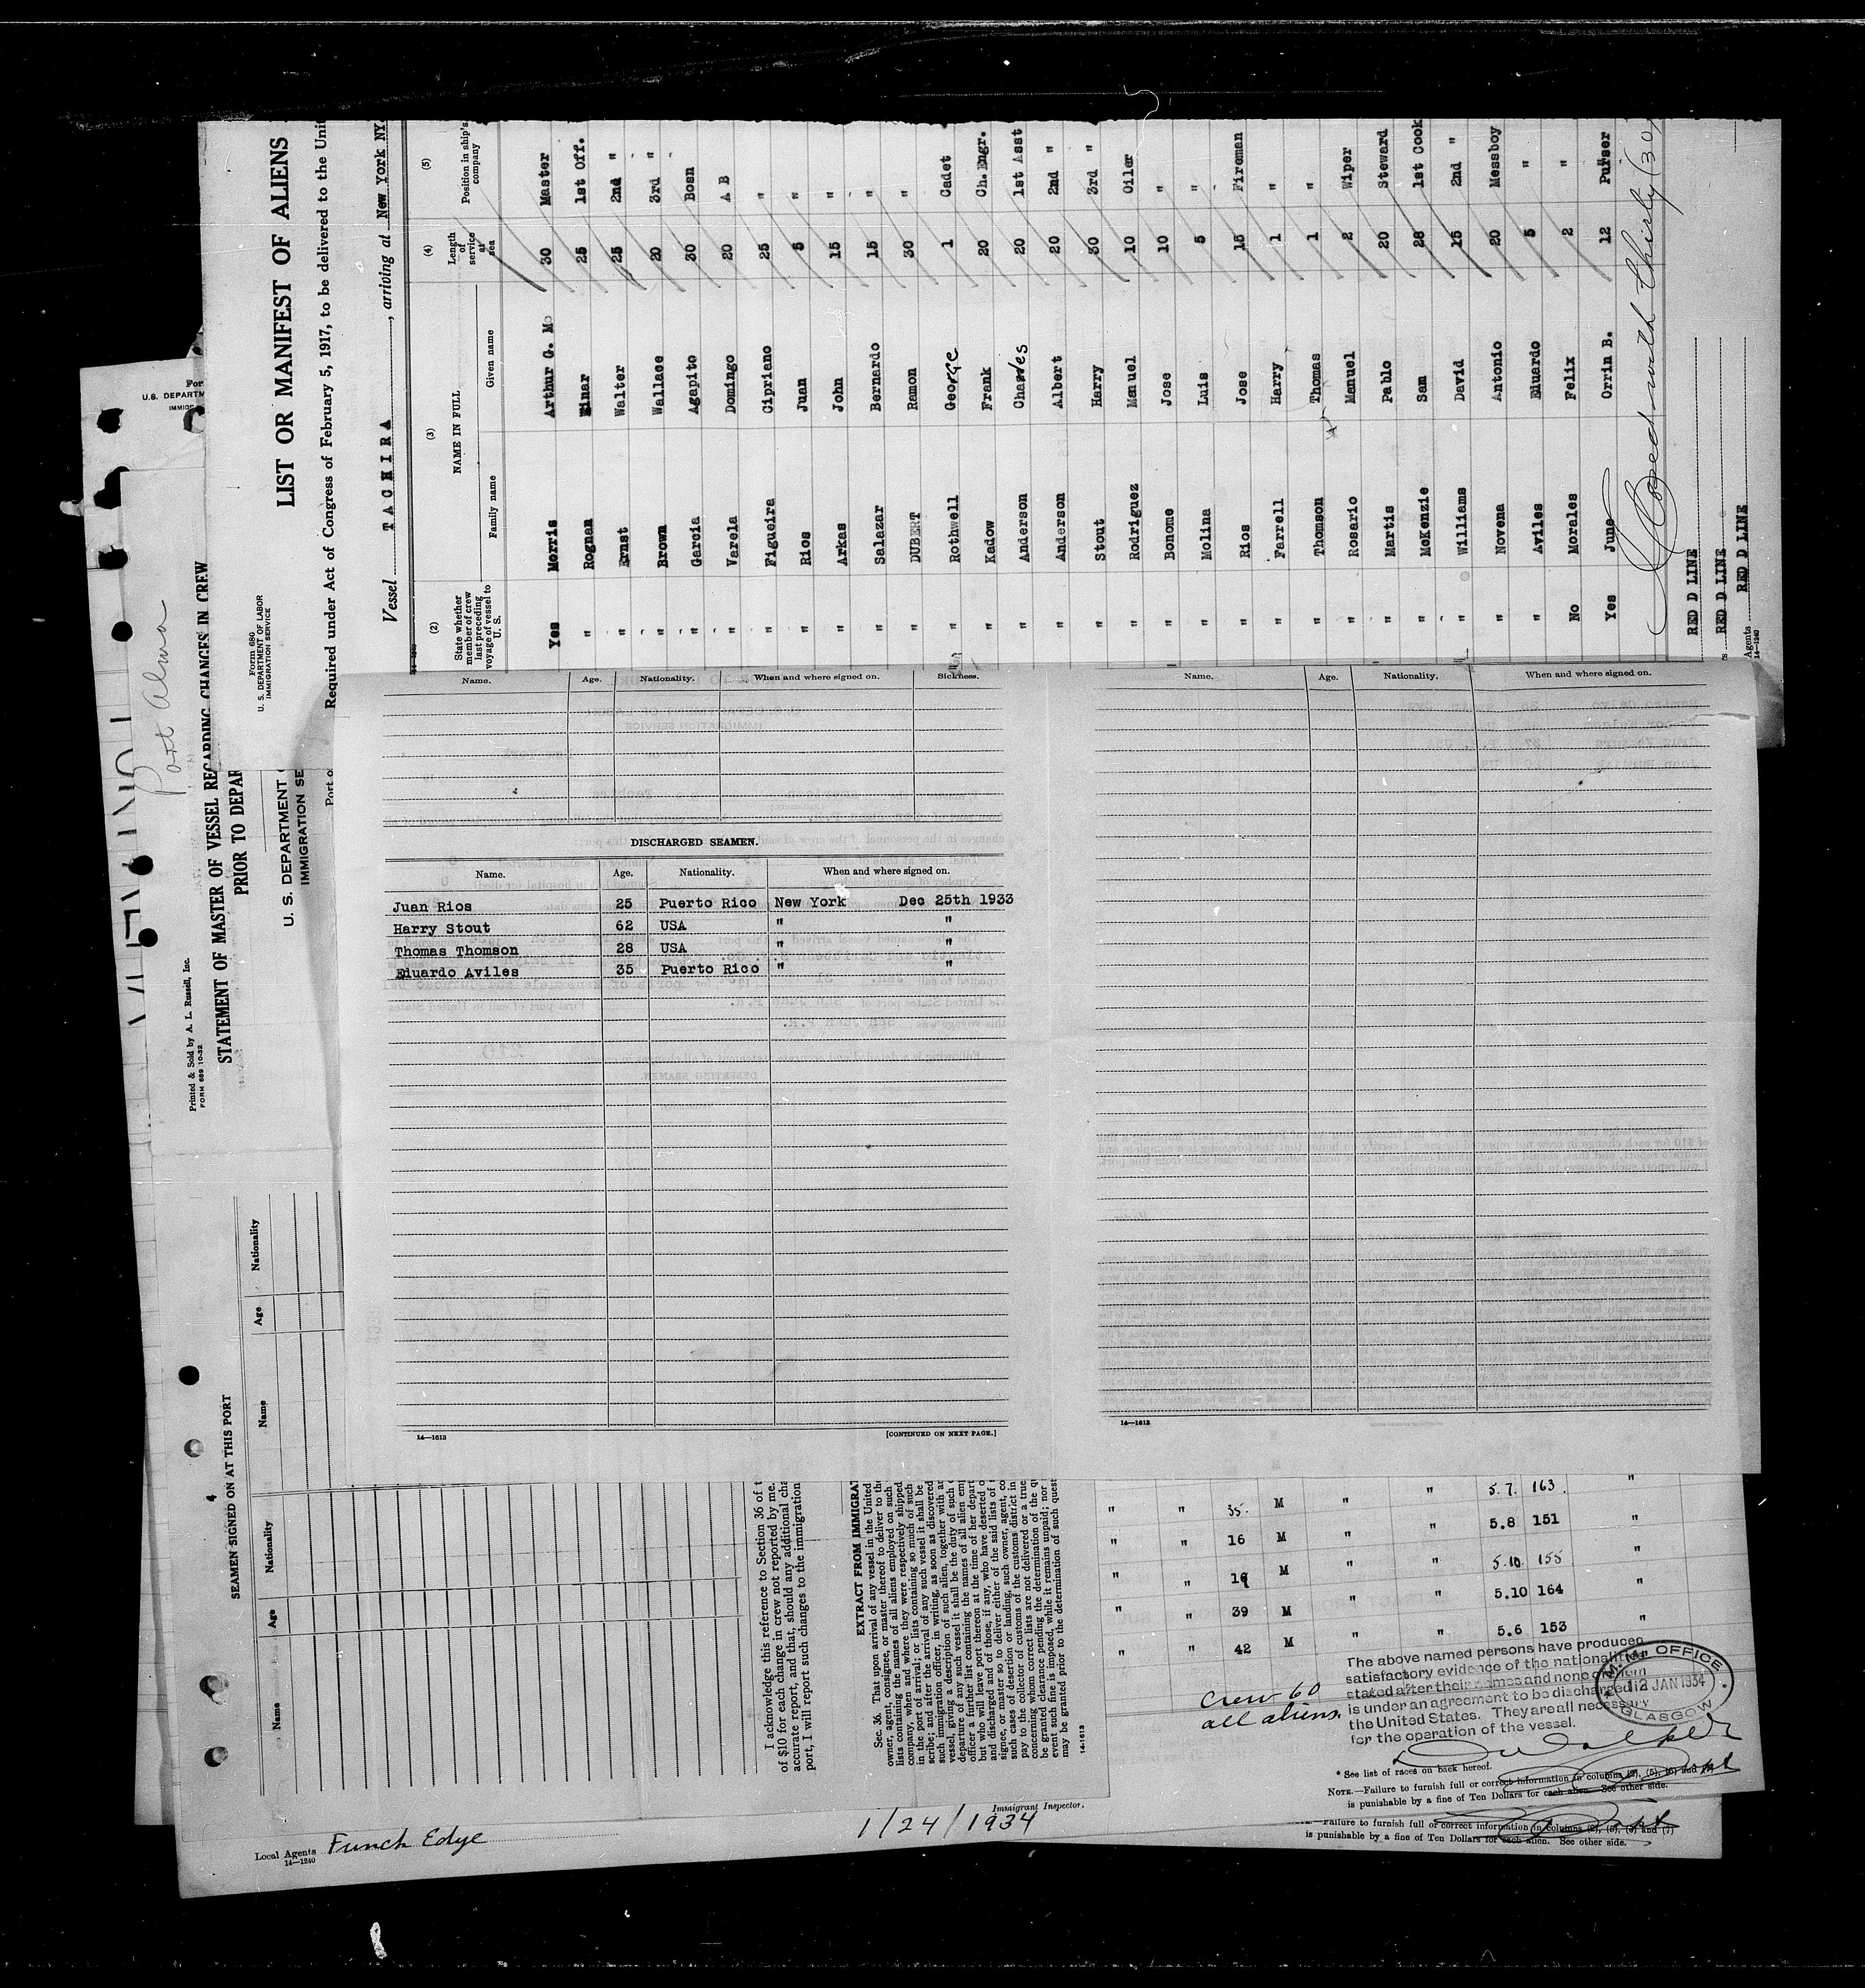 Form 686
U. S. DEPARTMENT OF LABOR
IMMIGRATION SERVICE
LIST OR MANIFEST OF ALIENS
Required under Act of Congress of February 5, 1917, to be delivered to the
Vessel TACHIRA, arriving at New York NY
(2) (3) (4) (5)
State whether member of crew last preceding voyage of vessel to U. S. NAME IN FULL Length of service at sea Position in ship's company
Family name Given name
Yes Morris Arthur G. Mo 30 Master
" Rognan Einar 25 1st Off.
" Ernst Walter 25 2nd "
" Brown Wallace 20 3rd "
" Garcia Agapito 30 Bosn
" Varela Domingo 20 A B
" Figueira Cipriano 25 "
" Rios Juan 5 "
" Arkas John 15 "
" Salazar Bernardo 15 "
" DUBERT Ramon 30 "
" Rothwell George 1 Cadet
" Kadow Frank 20 Ch. Engr.
" Anderson Charles 20 1st Asst
" Anderson Albert 20 2nd "
" Stout Harry 30 3rd "
" Rodriguez Manuel 10 Oiler
" Bonome Jose 10 "
" Molina Luis 5 "
" Rios Jose 15 Fireman
" Farrell Harry 1 "
" Thomson Thomas 1 "
" Rosario Manuel 2 Wiper
" Martis Pablo 20 Steward
" McKenzie Sam 28 1st Cook
" Williams David 15 2nd "
" Novena Antonio 20 Messboy
" Aviles Eduardo 5 "
No Morales Felix 2 "
Yes June Orrin B. 12 Purser
Closed with thirty (30)
RED D LINE
RED D LINE
Agents RED D LINE
14-1240
Name. Age. Nationality. When and where signed on. Sickness.
DISCHARGED SEAMEN.
Name. Age. Nationality. When and where signed on.
Juan Rios 25 Puerto Rico New York Dec 25th 1933
Harry Stout 62 USA " "
Thomas Thomson 28 USA " "
Eduardo Aviles 35 Puerto Rico " "
14—1613 [CONTINUED ON NEXT PAGE.]
Name. Age. Nationality. When and where signed on.
14—1613
For
U.S. DEPARTM
IMMIG
Port Alma
Printed & Sold by A. L. Russell, Inc.
FORM 689 10-32
STATEMENT OF MASTER OF VESSEL REGARDING CHANGES IN CREW
PRIOR TO DEPAR
U. S. DEPARTMENT
IMMIGRATION SE
Port o
SEAMEN SIGNED ON AT THIS PORT
4
Name Age Nationality
Name Age Nationality
I acknowledge this reference to Section 36 of
of $10 for each change in crew not reported by me.
accurate report, and that, should any additional cha
port, I will report such changes to the immigration
EXTRACT FROM IMMIGRAT
Sec. 36. That upon arrival of any vessel in the United
owner, agent, consignee, or master thereof to deliver to the
lists containing the names of all aliens employed on such
company, when and where they were respectively shipped
in the port of arrival; or lists containing so much of such
such immigration officer, in writing, as soon as discovered
scribe; and after the arrival of any such vessel it shall be
vessel, giving a description of such alien, together with a
departure of any such vessel it shall be the duty of such
officer a further list containing the names of all alien emp
but who will leave port thereon at the time of her depart
and discharged and of those, if any, who have deserted o
signee, or master so to deliver either of the said lists of
such cases of desertion or landing, such owner, agent, co
pay to the collector of customs of the customs district in
concerning whom correct lists are not delivered or a true
be granted clearance pending the determination of the qu
event such fine is imposed, while it remains unpaid; nor
may be granted prior to the determination of such quest
14-1613
" " 35. M " " 5.7. 163. "
" " 16 M " " 5.8 151 "
" " 19 M " " 5.10. 155 "
" " 39 M " " 5.10 164 "
" " 42 M " " 5.6 153 "
Crew 60
all aliens.
The above named persons have produced
satisfactory evidence of the nationalities
stated after their names and none of them
is under an agreement to be discharged in
the United States. They are all necessary
for the operation of the vessel.
M. M. OFFICE
12 JAN 1934
GLASGOW
* See list of races on back hereof.
NOTE.—Failure to furnish full or correct information in columns (2), (5), (6) and
is punishable by a fine of Ten Dollars for each alien. See other side.
Failure to furnish full or correct information in columns (2), (5), (6) and (7)
is punishable by a fine of Ten Dollars for each alien. See other side.
1/24/1934
Immigrant Inspector.
Local Agents Funch Edye
14—1240